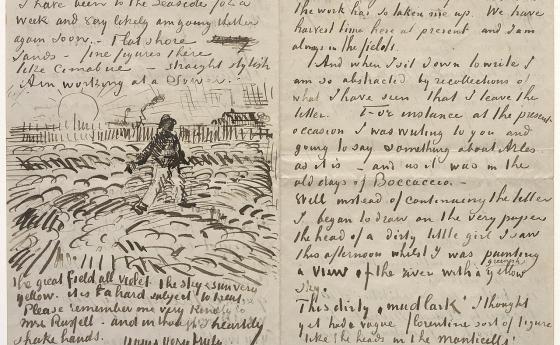 I have been to the seaside for a
week and very likely am going thither
again soon. - Flat shore
sands - fine figures there
like Cimabue - straight stylish
Am working at a Sower. -
the great field all violet the sky & sun very
yellow. it is a hard subject to treat.
Please remember me very kindly to
Mrs Russell - and in thought heartily
shake hands.
the work has so taken me up. We have
harvest time here at present and I am
always in the fields.
And when I sit down to write I
am so abstracted by recollections of
what I have seen that I leave the
letter. For instance at the present
occasion I was writing to you and
going to say something about Arles
as it is - and as it was in the
old days of Boccaccio. -
Well instead of continuing the letter
I began to draw on the very paper
the head of a dirty little girl I saw
this afternoon whilst I was painting
a view of the river with a greenish yellow
sky.
This dirty 'mudlark' I thought
yet had a vague florentine sort of figure
like the heads in the monticelli